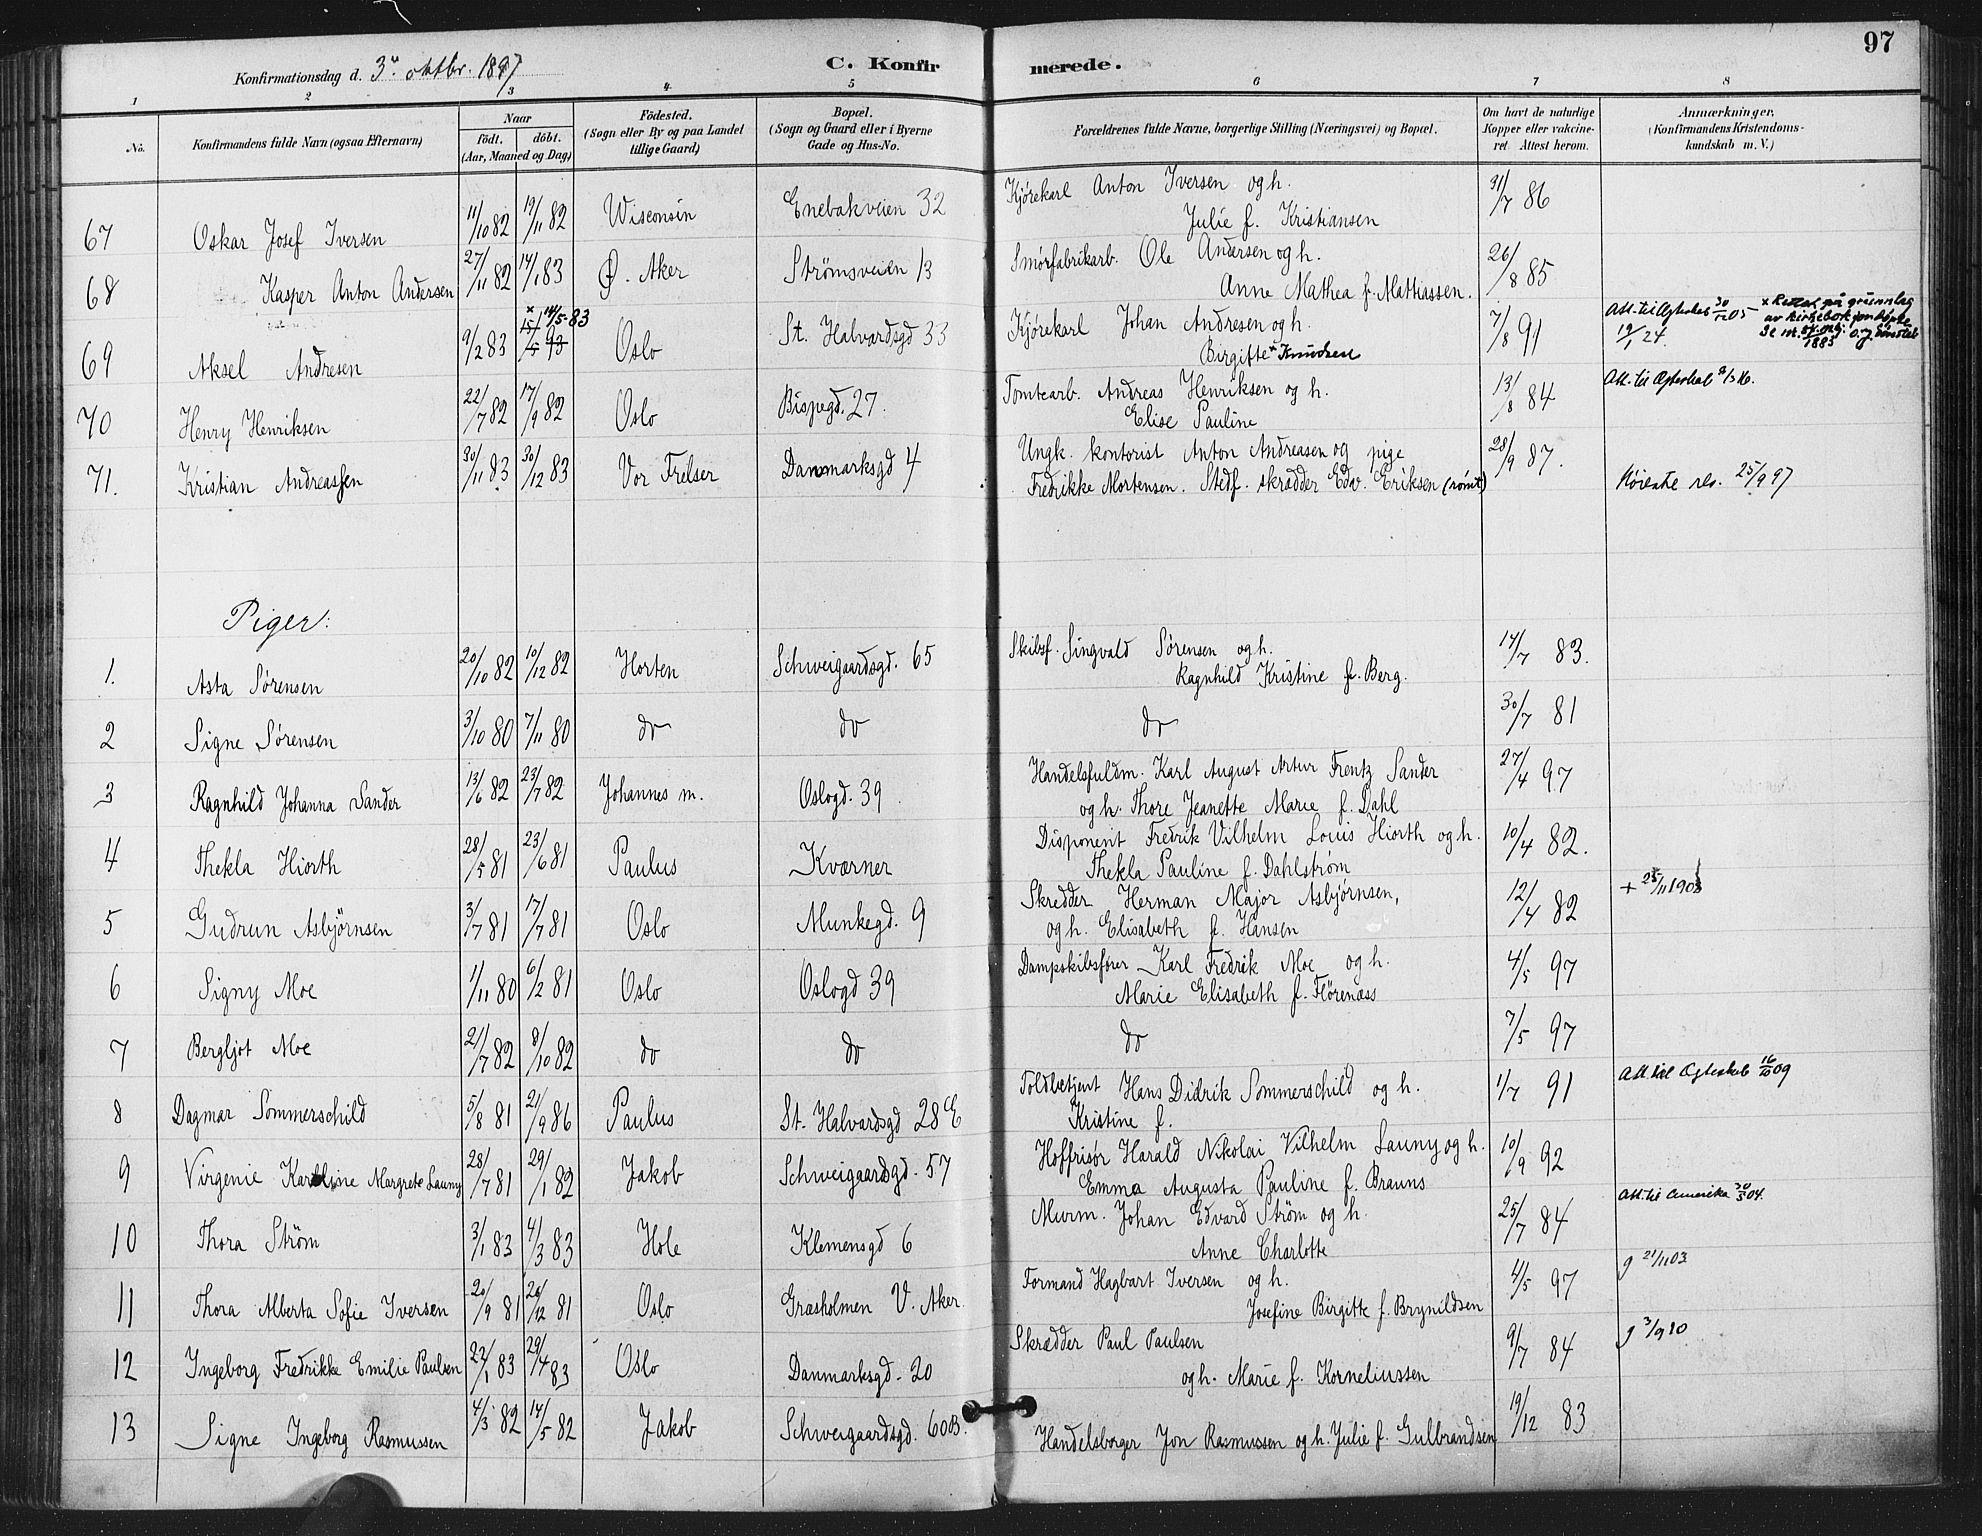 97
Konfirmationsdag d. 3die oktbr. 1897
C. Konfirmerede.
1 2 3 4 5 6 7 8
No.
Konfirmandens fulde Navn (ogsaa Efternavn)
Naar
födt. döbt.
(Aar, Maaned og Dag)
Födested.
(Sogn eller By og paa Landet
tillige Gaard)
Bopæl.
(Sogn og Gaard eller i Byerne
Gade og Hus-No.
Forældrenes fulde Navne, borgerlige Stilling (Næringsvei) og Bopæl.
Om havt de naturlige
Kopper eller vakcine-
ret. Attest herom.
Anmærkninger.
(Konfirmandens Kristendoms-
kundskab m. V.)
67 Oskar Josef Iversen 11/10 82 19/11 82 Wisconsin Enebakveien 32 Kjørekarl Anton Iversen og h. 31/7 86
Julie f. Kristiansen
68 Kasper Anton Andersen 27/11 82 14/1 83 Ø. Aker Strømsveien 13 Smørfabrikarb. Ole Andersen og h. 26/8 85
Anne Mathea f. Mattiassen.
69 Aksel Andresen 9/2 83 x 14/5-83 Oslo St. Halvardsgd 33 Kjørekarl Johan Andresen og h. 7/8 91 Att. til Ægteskab 30/12 05
Birgitte x Knudsen 19/1 24.
x Rettet på grunnlag
av kirkebok for døpte
1883
70 Henry Henriksen 22/7 82 17/9 82 Oslo Bispegd. 27. Tomtearb. Andreas Henriksen og h. 13/8 84 Att. til Ægteskab
Elise Pauline
71. Kristian Andreassen 30/11 83 30/12 83 Vor Frelser Danmarksgd 4 Ungk. kontorist Anton Andreasen og pige 28/9 87.
Fredrikke Mortensen. Stedf. skrædder Edv. Eriksen (rømt) 25/9 97
Piger:
1. Asta Sørensen 20/10 82 10/12 82 Horten Schweigaardsgd. 65 Skibsf. Singvald Sørensen og h. 14/7 83.
Ragnhild Kristine f. Berg.
2 Signe Sørensen 3/10 80 7/11 80 do do do 30/7 81
3 Ragnhild Johanna Sander 13/6 82 23/7 82 Johannes m. Oslogd. 39 Handelsfuldm. Karl August Artur Frentz Sander 27/4 97
og h. Thore Jeanette Marie f. Dahl
4 Thekla Hiorth 28/5 81 23/6 81 Paulus Kværner Disponent Fredrik Vilhelm Louis Hiorth og h. 10/4 82.
Thekla Pauline f. Dahlstrøm
5 Gudrun Asbjørnsen 3/7 81 17/7 81 Oslo Munkegd. 9 Skrædder Herman Major Asbjørnsen, 12/4 82 + 25/11 1903
og h. Elisabeth f. Hansen
6 Signy Moe 1/11 80 6/2 81 Oslo Oslogd 39 Dampskibsfører Karl Fredrik Moe og h. 4/5 97
Marie Elisabeth f. Florenæss
7 Bergljot Moe 21/7 82 8/10 82 do do do 7/5 97
8 Dagmar Sommerschild 5/8 81 21/9 86 Paulus St. Halvardsgd 28 E Toldbetjent Hans Didrik Sommerschild og h. 1/7 91 Att. til Ægteskab 16/10 09
Kristine f.
9 Virgenie Karoline Margrete Launy 28/7 81 29/1 82 Jakob Schweigaardsgd. 57 Hoffrisør Harald Nikolai Vilhelm Launy og h. 10/9 92
Emma Augusta Pauline f. Brauns
10 Thora Strøm 3/1 83 4/3 83 Hole Klemensgd 6 Murm. Johan Edvard Strøm og h. 25/7 84 Att. til Amerika 30/3 04.
Anne Charlotte
11 Thora Alberta Sofie Iversen 20/9 81 26/12 81 Oslo Græsholmen V. Aker. Formand Hagbart Iversen og h. 4/5 97 g 21/11 03
Josefine Birgitte f. Brynildsen
12 Ingeborg Fredrikke Emilie Paulsen 22/1 83 29/4 83 Oslo Danmarksgd. 20 Skrædder Paul Paulsen 9/7 84 g 3/9 10
og h. Marie f. Korneliussen
13 Signe Ingeborg Rasmussen 4/3 82 14/5 82 Jakob Schweigaardsgd. 60B. Handelsborger Jon Rasmussen og h. Julie f. Gulbrandsen 19/12 83